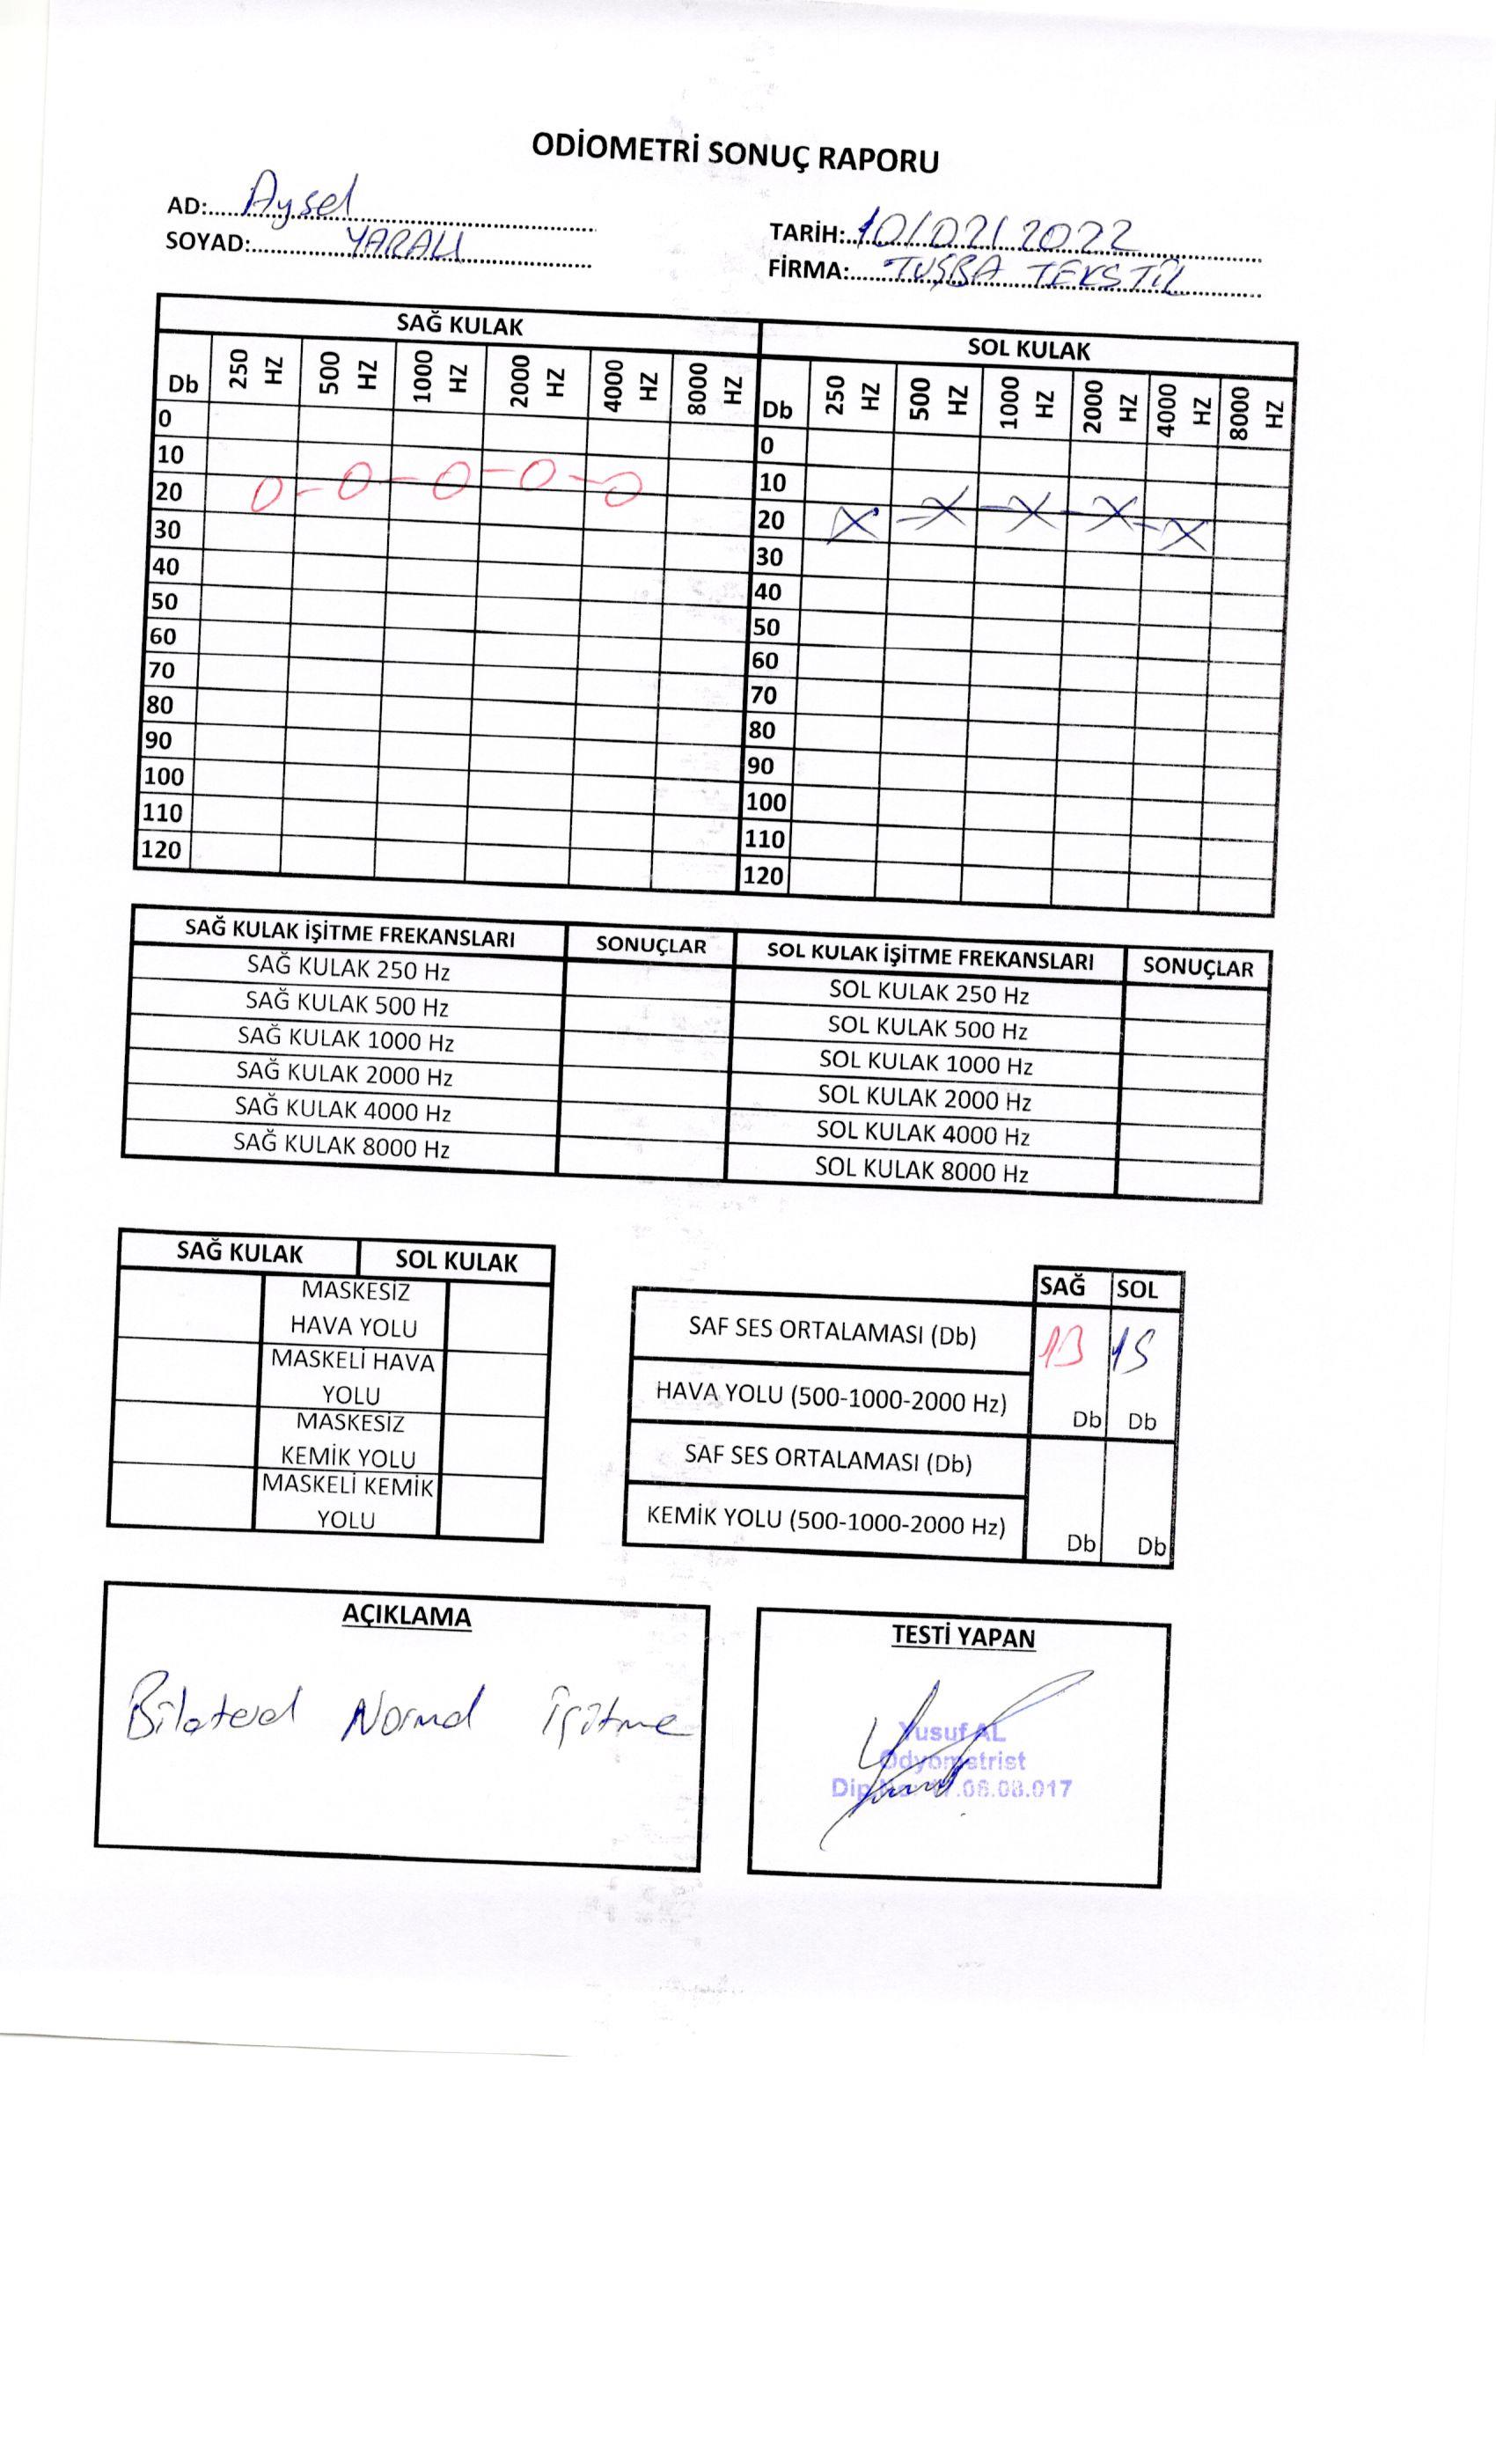 ODİOMETRİ SONUÇ RAPORU
AD: Aysel
SOYAD: YARALI
TARİH: 10/02/2022
FİRMA: TUŞBA TEKSTİL
SAĞ KULAK SOL KULAK
Db 250 HZ 500 HZ 1000 HZ 2000 HZ 4000 HZ 8000 HZ Db 250 HZ 500 HZ 1000 HZ 2000 HZ 4000 HZ 8000 HZ
0 0
10 10
20 20
30 30
40 40
50 50
60 60
70 70
80 80
90 90
100 100
110 110
120 120
SAĞ KULAK İŞİTME FREKANSLARI SONUÇLAR SOL KULAK İŞİTME FREKANSLARI SONUÇLAR
SAĞ KULAK 250 Hz SOL KULAK 250 Hz
SAĞ KULAK 500 Hz SOL KULAK 500 Hz
SAĞ KULAK 1000 Hz SOL KULAK 1000 Hz
SAĞ KULAK 2000 Hz SOL KULAK 2000 Hz
SAĞ KULAK 4000 Hz SOL KULAK 4000 Hz
SAĞ KULAK 8000 Hz SOL KULAK 8000 Hz
SAĞ KULAK SOL KULAK
MASKESİZ
HAVA YOLU
MASKELİ HAVA
YOLU
MASKESİZ
KEMİK YOLU
MASKELİ KEMİK
YOLU
SAĞ SOL
SAF SES ORTALAMASI (Db) 13 15
HAVA YOLU (500-1000-2000 Hz) Db Db
SAF SES ORTALAMASI (Db)
KEMİK YOLU (500-1000-2000 Hz) Db Db
AÇIKLAMA
Bilateral Normal işitme
TESTİ YAPAN
Yusuf AL
Odyometrist
.06.08.017